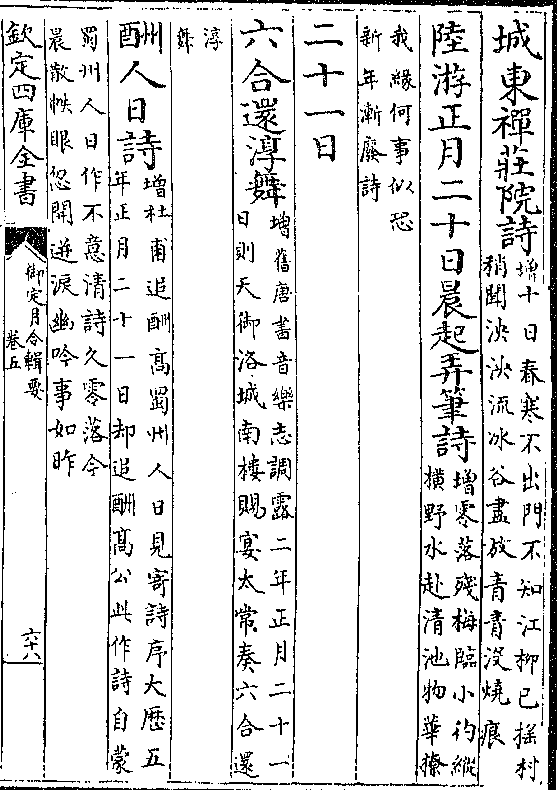 城東禪莊院詩增十日春寒不出門不知江柳已揺村
稍聞泱泱流冰谷盡放青青沒燒痕
陸游正月二十日晨起弄筆詩增零落殘梅臨小彴縱
橫野水赴清池物華撩
我緣何事似恐
新年漸廢詩
二十一日
六合還淳舞增舊唐書音樂志調露二年正月二十一
日則天御洛城南樓賜宴太常奏六合還
淳
舞
酬人日詩增杜甫追酬高蜀州人日見寄詩序大歴五
年正月二十一日却追酬高公此作詩自蒙
蜀州人日作不意清詩久零落今
晨散帙眼忽開迸淚幽吟事如昨
欽定四庫全書
御定月令輯要
卷五
六十八